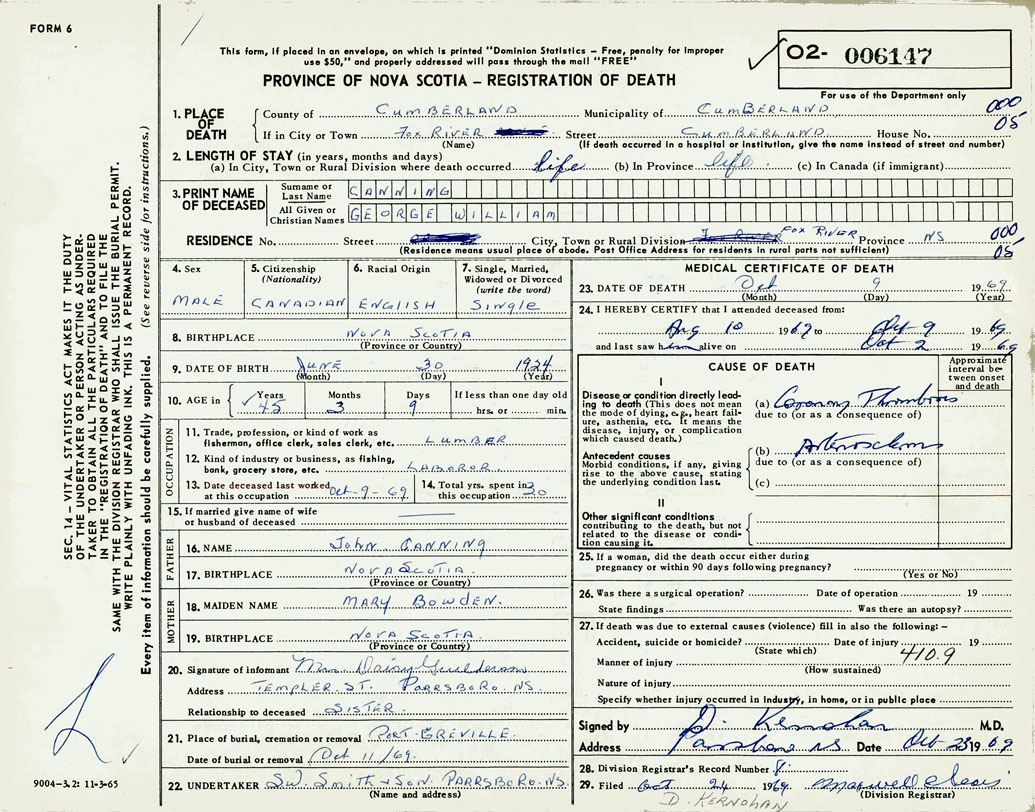 FORM 6
This form, if placed in an envelope, on which is printed "Dominion Statistics – Free, penalty for improper
use $50," and properly addressed will pass through the mail "FREE"
PROVINCE OF NOVA SCOTIA – REGISTRATION OF DEATH
O2- 006147
For use of the Department only
1. PLACE OF DEATH
County of CUMBERLAND Municipality of CUMBERLAND 000
If in City or Town FOX RIVER Street CUMBERLAND House No. 05
(Name) (If death occurred in a hospital or institution, give the name instead of street and number)
2. LENGTH OF STAY (in years, months and days)
(a) In City, Town or Rural Division where death occurred life (b) In Province life (c) In Canada (if immigrant)
3. PRINT NAME OF DECEASED
Surname or Last Name CANNING
All Given or Christian Names GEORGE WILLIAM
RESIDENCE No. Street City, Town or Rural Division FOX RIVER Province NS 000
(Residence means usual place of abode. Post Office Address for residents in rural parts not sufficient) 05
4. Sex MALE
5. Citizenship (Nationality) CANADIAN
6. Racial Origin ENGLISH
7. Single, Married, Widowed or Divorced (write the word) SINGLE
8. BIRTHPLACE NOVA SCOTIA
(Province or Country)
9. DATE OF BIRTH JUNE 30 1924
(Month) (Day) (Year)
10. AGE in Years 45 Months 3 Days 9 If less than one day old hrs. or min.
OCCUPATION
11. Trade, profession or kind of work as
fisherman, office clerk, sales clerk, etc. LUMBER
12. Kind of industry or business, as fishing,
bank, grocery store, etc. LABOROR
13. Date deceased last worked at this occupation Oct-9-69
14. Total yrs. spent in this occupation 20
15. If married give name of wife
or husband of deceased
FATHER
16. NAME JOHN CANNING
17. BIRTHPLACE NOVA SCOTIA
(Province or Country)
MOTHER
18. MAIDEN NAME MARY BOWDEN.
19. BIRTHPLACE NOVA SCOTIA
(Province or Country)
20. Signature of informant Mrs Daisy
Address TEMPLER ST. PARRSBORO. NS.
Relationship to deceased SISTER.
21. Place of burial, cremation or removal PORT-GREVILLE.
Date of burial or removal Oct 11/69.
22. UNDERTAKER S.W. SMITH & SON. PARRSBORO. NS.
(Name and address)
MEDICAL CERTIFICATE OF DEATH
23. DATE OF DEATH Oct 9 1969
(Month) (Day) (Year)
24. I HEREBY CERTIFY that I attended deceased from:
Aug 10 1969 to Oct 9 1969
and last saw him alive on Oct 2 1969
CAUSE OF DEATH
Approximate interval between onset and death
I
Disease or condition directly leading to death (This does not mean the mode of dying, e.g., heart failure, asthenia, etc. It means the disease, injury, or complication which caused death.)
(a) Coronary Thrombosis
due to (or as a consequence of)
Antecedent causes
Morbid conditions, if any, giving rise to the above cause, stating the underlying condition last.
(b) Arteriosclerosis
due to (or as a consequence of)
(c)
II
Other significant conditions
contributing to the death, but not related to the disease or condition causing it.
25. If a woman, did the death occur either during
pregnancy or within 90 days following pregnancy?
(Yes or No)
26. Was there a surgical operation? Date of operation 19
State findings Was there an autopsy?
27. If death was due to external causes (violence) fill in also the following: –
Accident, suicide or homicide? Date of injury 19
(State which) 410.9
Manner of injury
(How sustained)
Nature of injury
Specify whether injury occurred in Industry, in home, or in public place
Signed by D. Kernohan M.D.
Address Parrsboro NS Date Oct 23 1969
28. Division Registrar's Record Number 8.
29. Filed Oct 24 1969
(Division Registrar)
D. KERNOHAN
SEC. 14 – VITAL STATISTICS ACT MAKES IT THE DUTY
OF THE UNDERTAKER OR PERSON ACTING AS UNDER-
TAKER TO OBTAIN ALL THE PARTICULARS REQUIRED
IN THE "REGISTRATION OF DEATH" AND TO FILE THE
SAME WITH THE DIVISION REGISTRAR WHO SHALL ISSUE THE BURIAL PERMIT.
WRITE PLAINLY WITH UNFADING INK. THIS IS A PERMANENT RECORD.
Every item of information should be carefully supplied. (See reverse side for instructions.)
9004–3.2: 11-3-65